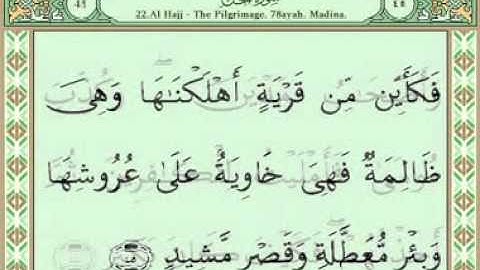 45 22.Al Hajj - The Pilgrimage. 78ayah. Madina. ٤٥
فَكَأَيِّن مِّن قَرْيَةٍ أَهْلَكْنَٰهَا وَهِىَ
ظَالِمَةٌ فَهِىَ خَاوِيَةٌ عَلَىٰ عُرُوشِهَا
وَبِئْرٍ مُّعَطَّلَةٍ وَقَصْرٍ مَّشِيدٍ ٤٥